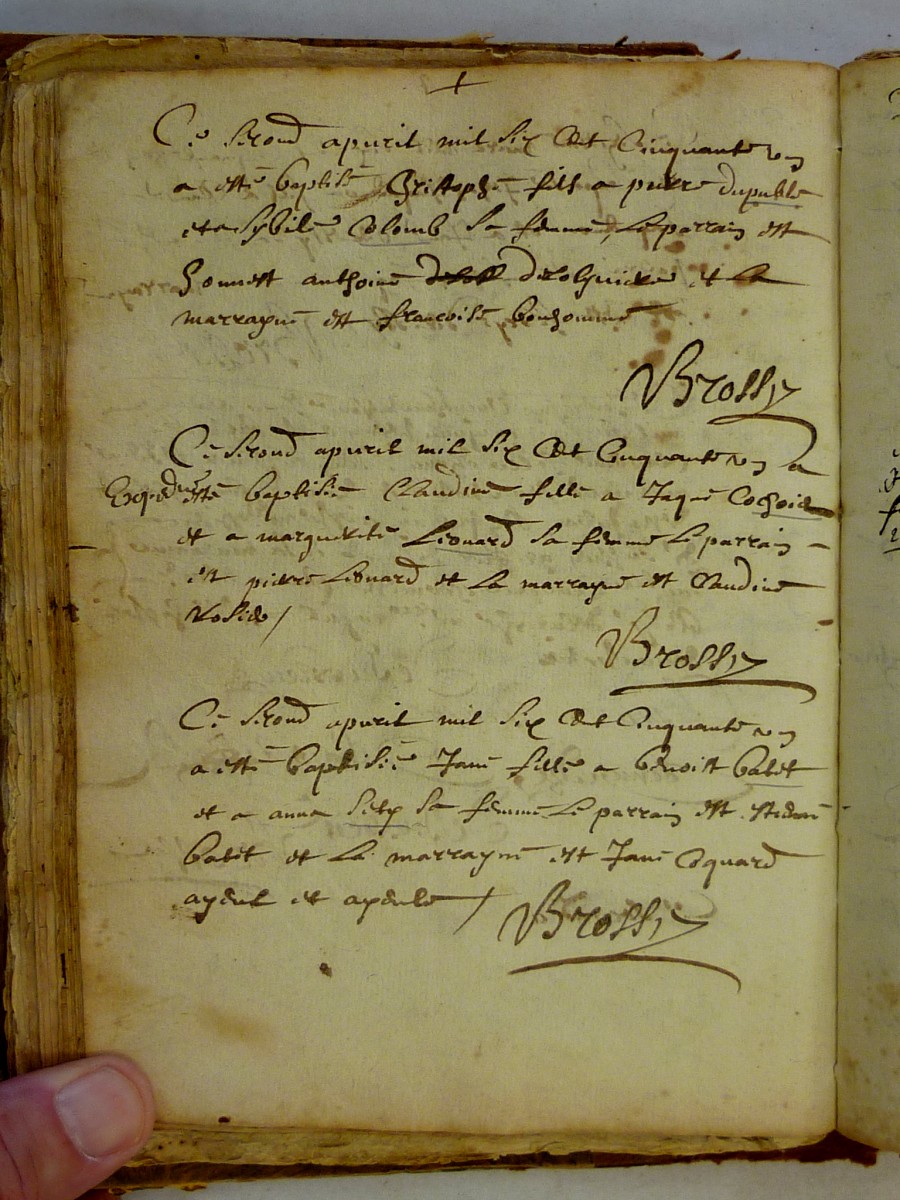 +
Ce second apvril mil six cent cinquante un
a esté baptisé Christophe fils a pierre dupuble
et a Sybile Colomb sa femme, Le parrain est
honnest anthoine et la
marrayne est francoise bonhomme
Brossy
Ce second apvril mil six cent cinquante un a
esté baptisée Claudine fille a Jaque
et a marguerite Léonard sa femme Le parrain
est pierre Léonard et La marrayne est Claudine
Brossy
Ce second apvril mil six cent cinquante un
a esté baptisée Jane fille a benoist batet
et a anna sa femme Le parrain est
batet et La marrayne est Jane Coquard
ayeul et ayeule /
Brossy